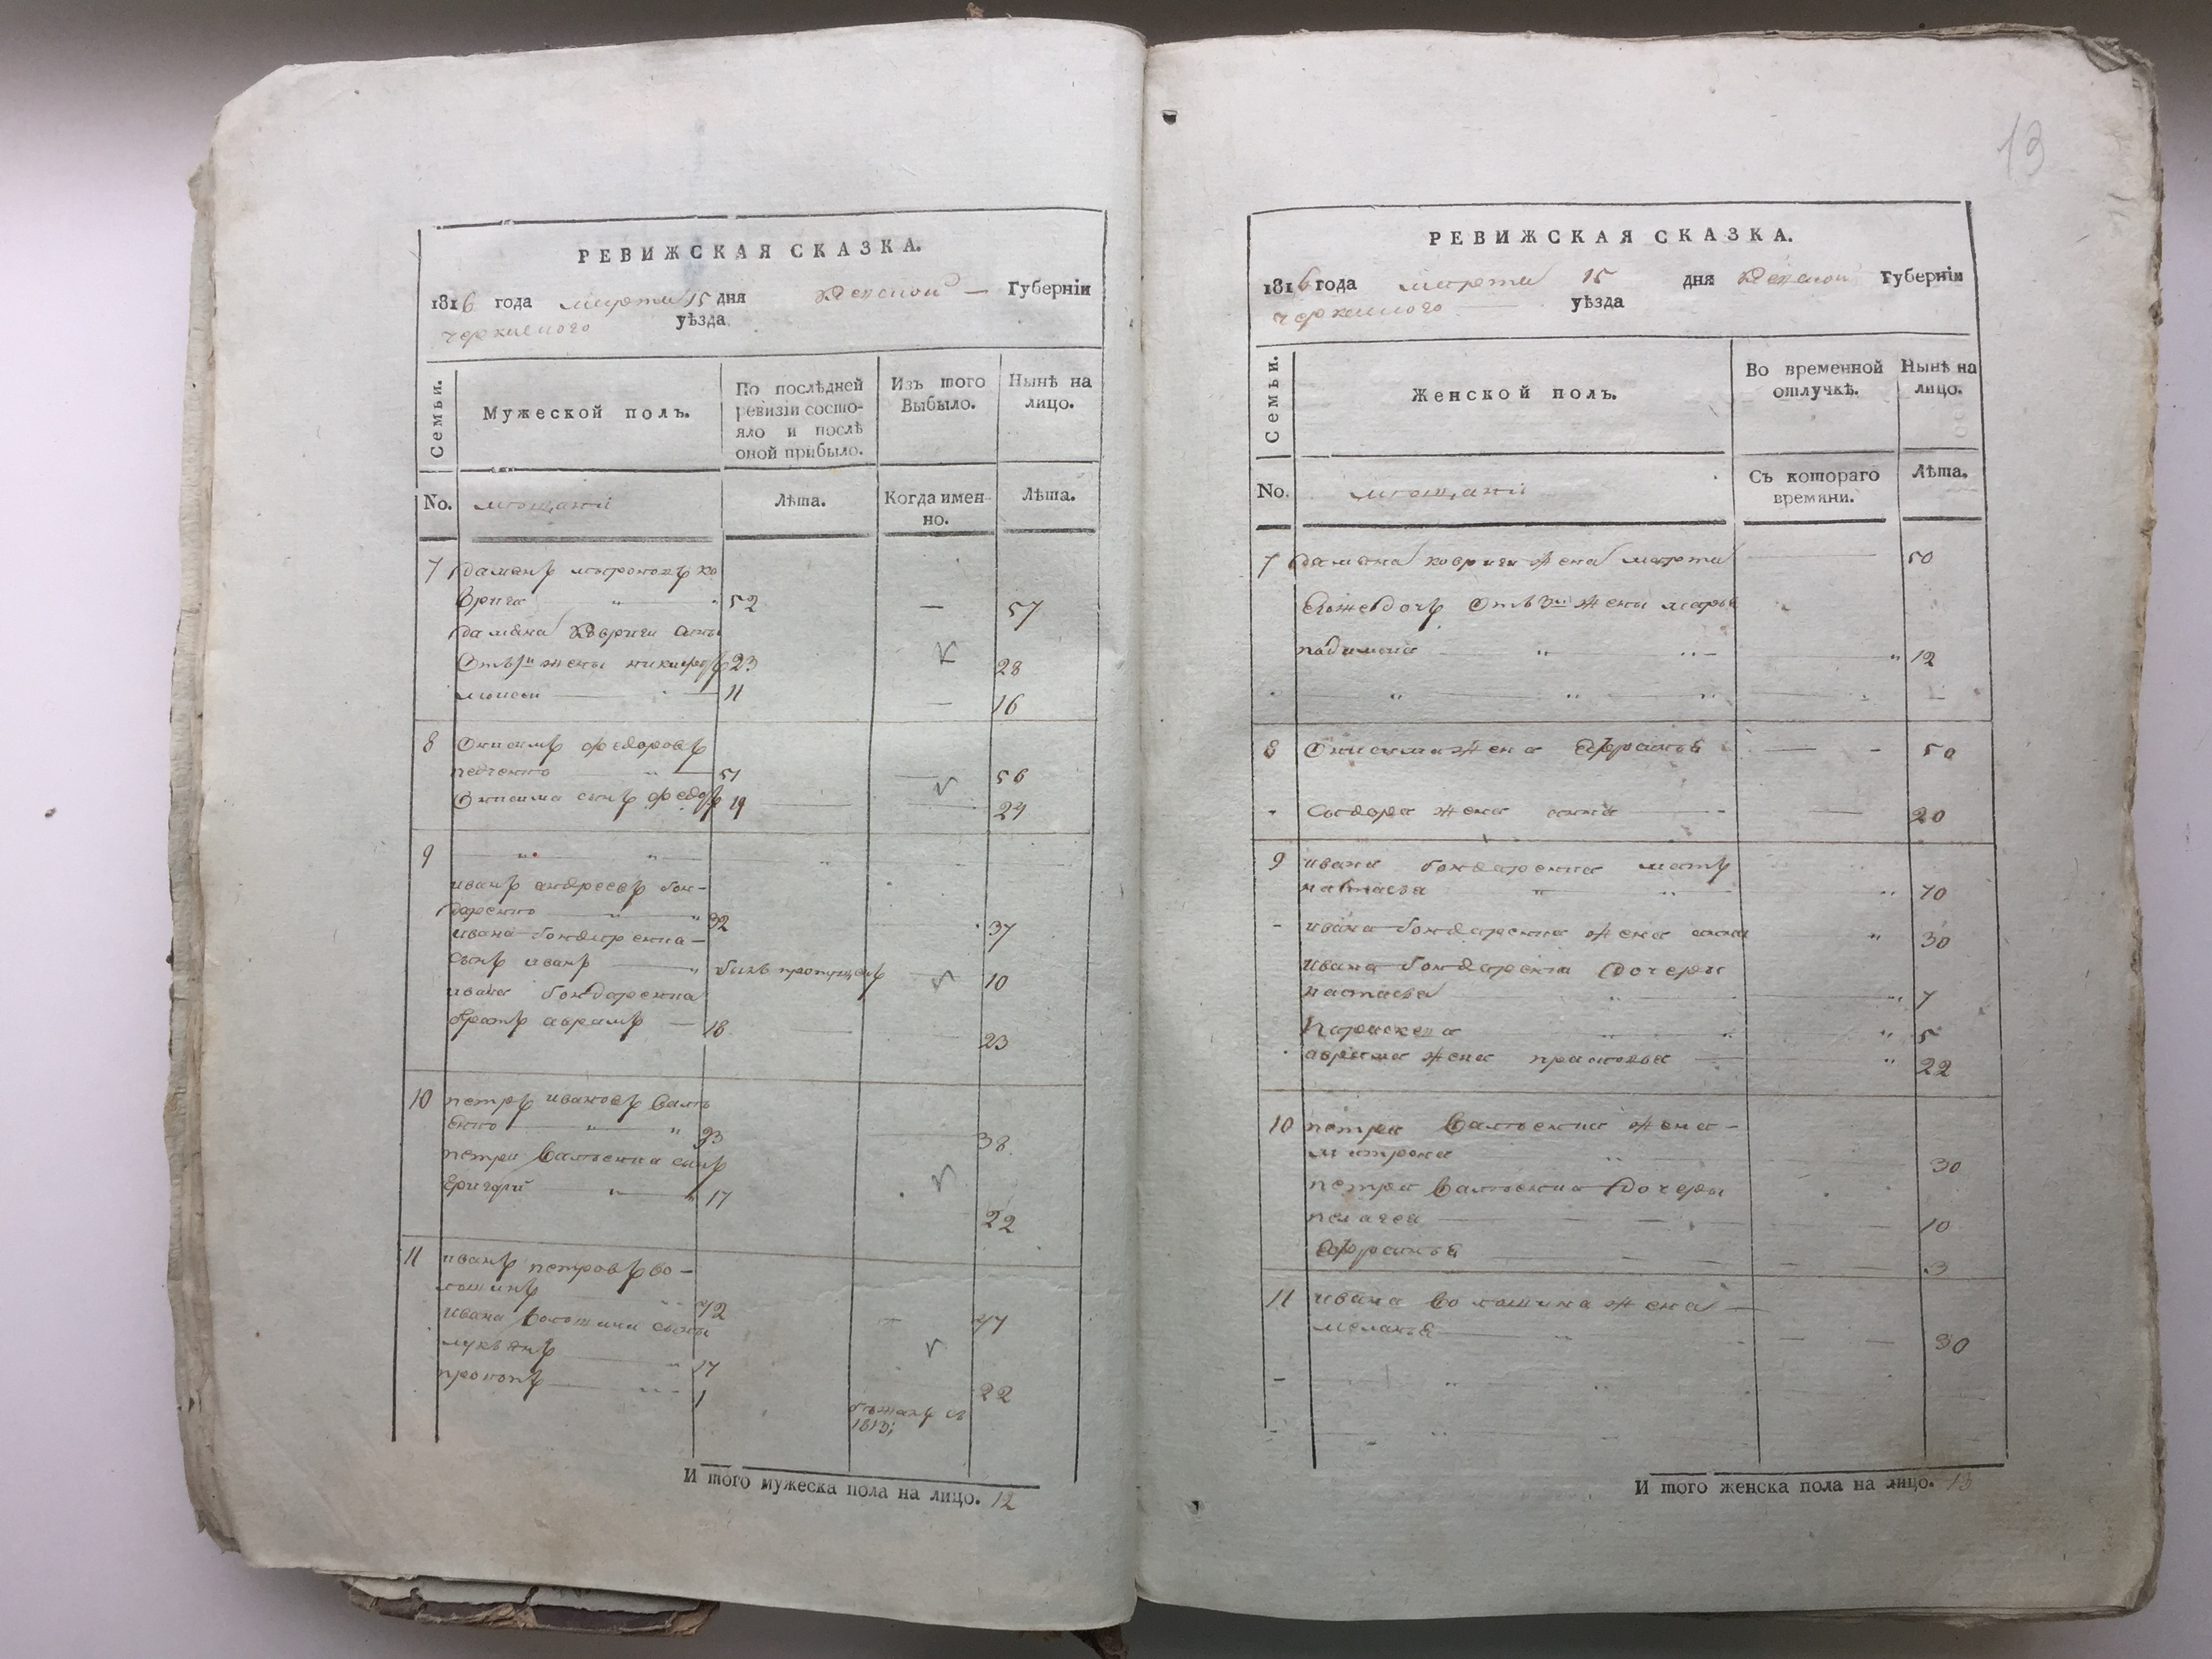 РЕВИЖСКАЯ СКАЗКА.
1816 года марта 15 дня Киевской — Губернїи
черкаского уѣзда
Семьи.
Мужеской полъ.
По послѣдней
ревизїи состо-
яло и послѣ
оной прибыло.
Изъ того
Выбыло.
Нынѣ на
лицо.
No. мещани
Лѣта.
Когда имен-
но.
Лѣта.
7 даманъ ко
врига 52 — 57
дамана Ковриги сыны
Отъ 1й жены никифоръ 23 28
моисей 11 — 16
8 Онисимъ федоровъ
51 — 56
Онисима сынъ 19 24
9
иванъ андреевъ бон-
даренко 32 37
ивана бондаренка
сынъ иванъ былъ пропущенъ 10
ивана бондаренка
братъ аврамъ — 18 23
10 петръ ивановъ
енко 33 38
петра сынъ
Григорій 17
22
11 иванъ петровъ во-
лошинъ 42 47
ивана Волошина сыны
лукьянъ 17 22
прокопъ 1
съ
1813;
И того мужеска пола на лицо. 12
13
РЕВИЖСКАЯ СКАЗКА.
1816 года марта 15 дня Киевской Губернїи
черкаского уѣзда
Семьи.
Женской полъ.
Во временной
отлучкѣ.
Нынѣ на
лицо.
No. мещани
Съ котораго
времяни.
Лѣта.
7 дамана ковриги жена марта 50
Егоже дочь Отъ жены марья
12
8 Онисима жена Ефросинья 50
жена анна 20
9 ивана бондаренка мать
настасья 70
ивана бондаренка жена анна 30
ивана бондаренка дочери
настасья 7
Параскева 5
аврама жена 22
10 петра жена —
митрона 30
петра дочери
пелагея 10
Ефросинья 3
11 ивана Волошина жена —
меланья 30
И того женска пола на лицо. 13